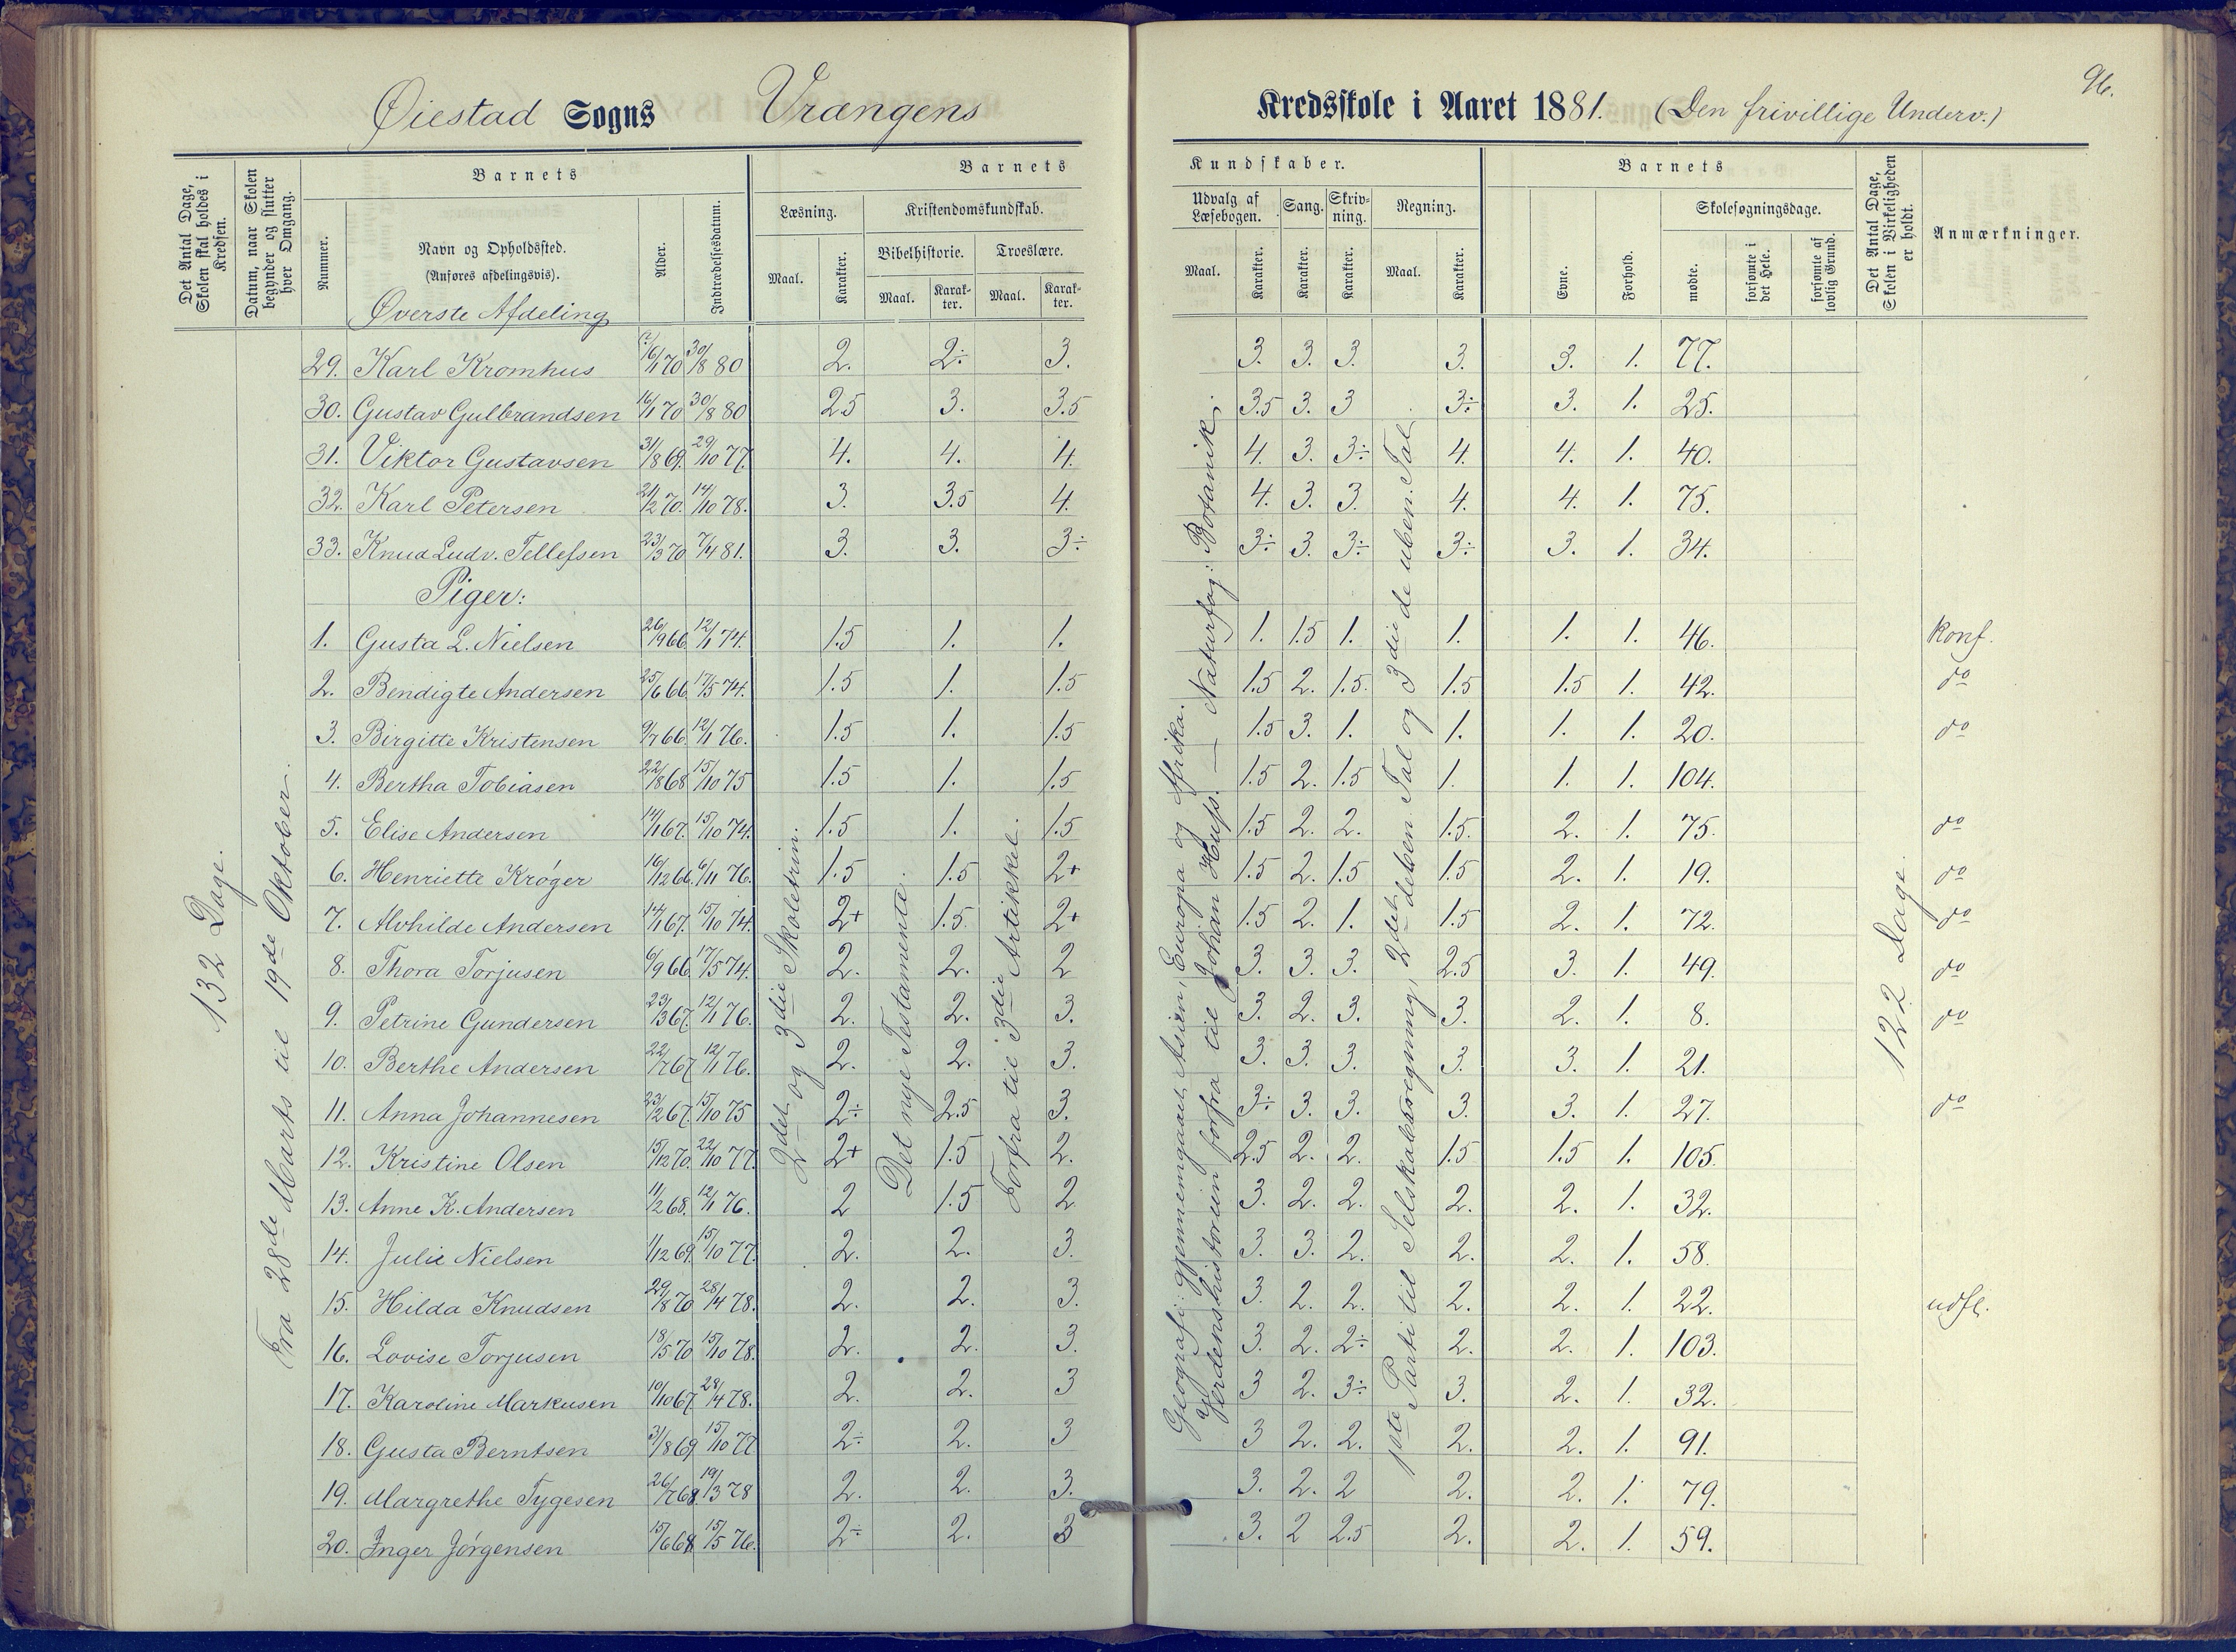 96.
Øiestad Sogns Vrangens Kredsskole i Aaret 1881. (Den frivillige Underv.)
Det Antal Dage, Skolen skal holdes i Kredsen.
Datum, naar Skolen begynder og slutter hver Omgang.
Barnets
Nummer.
Navn og Opholdssted.
(Anføres afdelingsvis).
Øverste Afdeling
Alder.
Indtrædelsesdatum.
Barnets Kundskaber.
Læsning.
Maal.
Karakter.
Kristendomskundskab.
Bibelhistorie.
Maal.
Karakter.
Troeslære.
Maal.
Karakter.
Udvalg af Læsebogen.
Maal.
Karakter.
Sang.
Karakter.
Skrivning.
Karakter.
Regning.
Maal.
Karakter.
Barnets
Evne.
Forhold.
Skolesøgningsdage.
mødte.
forsømte i det Hele.
forsømte af lovlig Grund.
Det Antal Dage, Skolen i Virkeligheden er holdt.
Anmærkninger.
132 Dage.
Fra 28de Marts til 19de Oktober.
2det og 3die Skoletrin.
Det nye Testamente.
Forfra til 3die Artikkel.
Geografi: gjennemgaaet Asien, Europa og Afrika.
Verdenshistorien forfra til Johan Huss. — Naturfag: Botanik.
1ste Parti til Selskabsregning, 2det deben. Tal og 3die de uben. Tal
122 Dage.
29. Karl Kromhus 16/1 70 30/8 80 2. 2÷ 3. 3. 3. 3. 3. 3. 1. 77.
30. Gustav Gulbrandsen 16/1 70 30/8 80 2.5 3. 3.5 3.5 3. 3 3÷ 3. 1. 25.
31. Viktor Gustavsen 31/8 69. 29/10 77. 4. 4. 4. 4. 3. 3÷ 4. 4. 1. 40.
32. Karl Petersen 21/2 70. 14/10 78. 3. 3.5 4. 4. 3. 3. 4. 4. 1. 75.
33. Knud Ludv. Tellefsen 23/3 70 7/4 81. 3. 3. 3÷ 3÷ 3. 3÷ 3÷ 3. 1. 34.
Piger:
1. Gusta L. Nielsen 26/9 66. 12/1 74. 1.5 1. 1. 1. 1.5 1. 1. 1. 1. 46. konf.
2. Bendigte Andersen 25/6 66 17/5 74. 1.5 1. 1.5 1.5 2. 1.5. 1.5 1.5 1. 42. do
3. Birgitte Kristensen 9/7 66. 12/1 76. 1.5 1. 1.5 1.5 3. 1. 1. 1. 1. 20. do
4. Bertha Tobiasen 22/8 68 15/10 75 1.5 1. 1.5 1.5 2. 1.5 1. 1. 1. 104.
5. Elise Andersen 14/1 67. 15/10 74. 1.5 1. 1.5 1.5 2. 2. 1.5. 2. 1. 75. do
6. Henriette Krøger 16/12 66. 6/11 76. 1.5 1.5 2+ 1.5 2. 1.5 1.5 2. 1. 19. do
7. Alvhilde Andersen 14/1 67. 15/10 74. 2+ 1.5. 2+ 1.5 2. 1. 1.5 2. 1. 72. do
8. Thora Torjusen 6/9 66. 17/5 74. 2. 2. 2 3. 3. 3. 2.5 3. 1. 49. do
9. Petrine Gundersen 23/3 67. 12/1 76. 2. 2. 3. 3. 2. 3. 3. 2. 1. 8. do
10. Berthe Andersen 22/7 67 12/1 76. 2. 2. 3. 3. 3. 3. 3. 3. 1. 21.
11. Anna Johannesen 23/2 67. 15/10 75 2÷ 2.5 3. 3÷ 3. 3. 3. 3. 1. 27. do
12. Kristine Olsen 15/12 70. 22/10 77. 2+ 1.5 2. 2.5 2. 2. 1.5 1.5 1. 105.
13. Anne K. Andersen 11/2 68. 12/1 76. 2 1.5 2 3. 2. 2. 2. 2. 1. 32.
14. Julie Nielsen 1/12 69. 15/10 77. 2. 2. 3. 3. 3. 2. 2. 2. 1. 58.
15. Hilda Knudsen 29/8 70 28/4 78. 2. 2. 3. 3. 2. 2. 2. 2. 1. 22. udfl.
16. Lovise Torjusen 18/5 70 15/10 78. 2. 2. 3. 3. 2. 2÷ 2. 2. 1. 103.
17. Karoline Markusen 10/10 67 28/4 78. 2. 2. 3 3 2. 3÷ 3. 2. 1. 32.
18. Gusta Berntsen 31/8 69. 15/10 77 2÷ 2. 3 3 2. 2. 2. 2. 1. 91.
19. Margrethe Tygesen 26/7 68. 19/3 78 2. 2. 3. 3. 2. 2 2. 2. 1. 79.
20. Inger Jørgensen 15/6 68 15/5 76. 2÷ 2. 3 3. 2 2.5 2. 2. 1. 59.